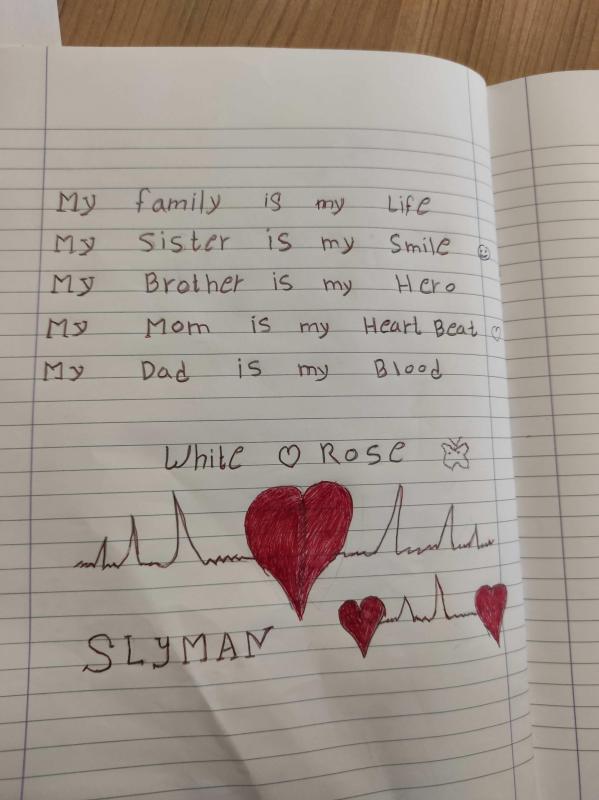 My family is my Life
My Sister is my Smile
My Brother is my Hero
My Mom is my Heart Beat
My Dad is my Blood
White Rose
SLYMAN